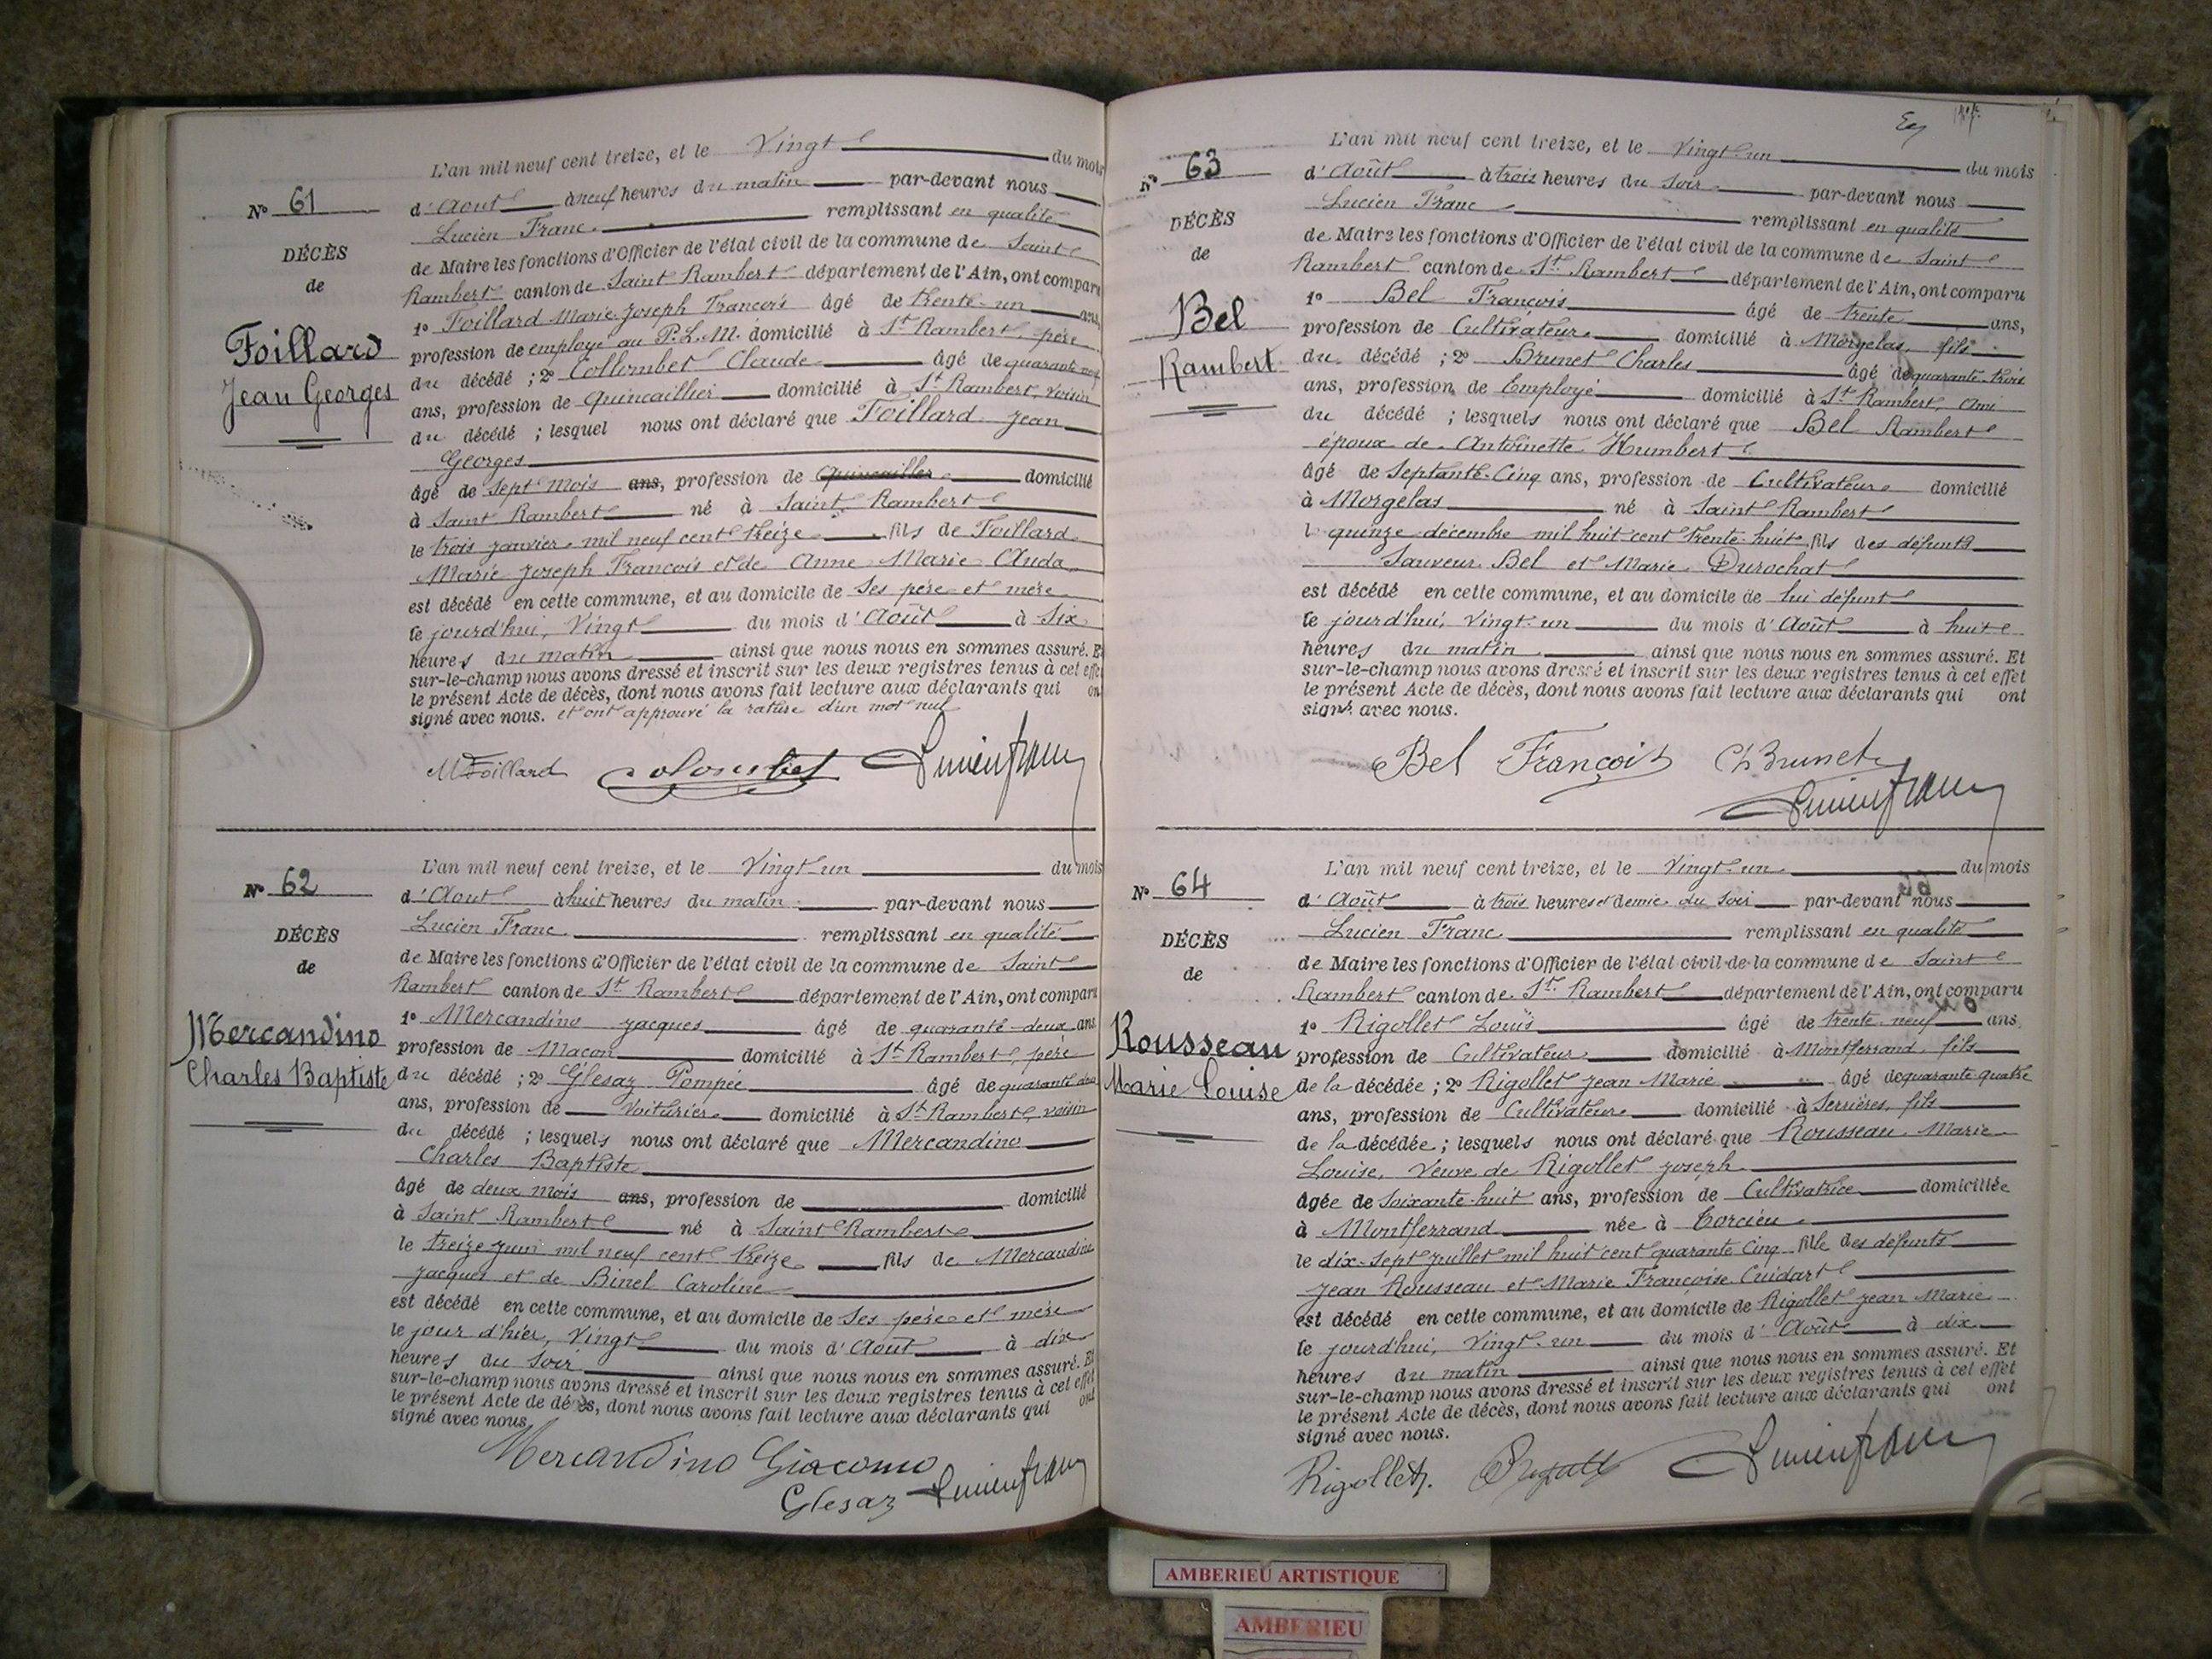 L'an mil neuf cent treize, et le Vingt du mois
N° 61
d'Aout à neuf heures du matin par-devant nous
Lucien Franc remplissant en qualité
DÉCÈS
de
de Maire les fonctions d'Officier de l'état civil de la commune de Saint
Rambert canton de Saint Rambert département de l'Ain, ont comparu
Foillard
Jean Georges
1° Foillard Marie Joseph François âgé de trente-un ans,
profession de employé au P.L.M. domicilié à St Rambert, père
du décédé ; 2° Collombet Claude âgé de quarante
ans, profession de quincaillier domicilié à St Rambert, voisin
du décédé ; lesquel nous ont déclaré que Foillard Jean
Georges
âgé de sept mois ans, profession de quincailler domicilié
à Saint Rambert né à Saint Rambert
le trois janvier mil neuf cent treize fils de Foillard
Marie Joseph François et de Anne Marie Anda
est décédé en cette commune, et au domicile de ses père et mère
le jourd'hui, Vingt du mois d'Août à six
heures du matin ainsi que nous nous en sommes assuré. Et
sur-le-champ nous avons dressé et inscrit sur les deux registres tenus à cet effet
le présent Acte de décès, dont nous avons fait lecture aux déclarants qui ont
signé avec nous. et ont approuvé la rature d'un mot nul
MFoillard Colombet Lucien Franc
L'an mil neuf cent treize, et le Vingt-un du mois
N° 62
d'Aout à huit heures du matin par-devant nous
Lucien Franc remplissant en qualité
DÉCÈS
de
de Maire les fonctions d'Officier de l'état civil de la commune de Saint
Rambert canton de St Rambert département de l'Ain, ont comparu
Mercandino
Charles Baptiste
1° Mercandino Jacques âgé de quarante-deux ans
profession de Maçon domicilié à St Rambert, père
du décédé ; 2° Glesaz Pompée âgé de quarante
ans, profession de Voiturier domicilié à St Rambert, voisin
du décédé ; lesquels nous ont déclaré que Mercandino
Charles Baptiste
âgé de deux mois ans, profession de domicilié
à Saint Rambert né à Saint Rambert
le treize juin mil neuf cent treize fils de Mercandino
Jacques et de Binel Caroline
est décédé en cette commune, et au domicile de ses père et mère
le jour d'hier, Vingt du mois d'Août à dix
heures du soir ainsi que nous nous en sommes assuré. Et
sur-le-champ nous avons dressé et inscrit sur les deux registres tenus à cet effet
le présent Acte de décès, dont nous avons fait lecture aux déclarants qui ont
signé avec nous.
Mercandino Giacomo
Glesaz Lucien Franc
L'an mil neuf cent treize, et le Vingt-un du mois
N° 63
d'Août à trois heures du soir par-devant nous
Lucien Franc remplissant en qualité
DÉCÈS
de
de Maire les fonctions d'Officier de l'état civil de la commune de Saint
Rambert canton de St Rambert département de l'Ain, ont comparu
Bel
Rambert
1° Bel François âgé de trente ans,
profession de Cultivateur domicilié à Morgelas, fils
du décédé ; 2° Brunet Charles âgé de quarante-trois
ans, profession de Employé domicilié à St Rambert, ami
du décédé ; lesquels nous ont déclaré que Bel Rambert
époux de Antoinette Humbert
âgé de septante-cinq ans, profession de Cultivateur domicilié
à Morgelas né à Saint Rambert
le quinze décembre mil huit cent trente-huit, fils des défunts
Sauveur Bel et Marie Durochat
est décédé en cette commune, et au domicile de lui défunt
le jourd'hui, Vingt-un du mois d'Août à huit
heures du matin ainsi que nous nous en sommes assuré. Et
sur-le-champ nous avons dressé et inscrit sur les deux registres tenus à cet effet
le présent Acte de décès, dont nous avons fait lecture aux déclarants qui ont
signé avec nous.
Bel François Ch Brunet
Lucien Franc
L'an mil neuf cent treize, et le Vingt-un du mois
N° 64
d'Août à trois heures et demie du soir par-devant nous
Lucien Franc remplissant en qualité
DÉCÈS
de
de Maire les fonctions d'Officier de l'état civil de la commune de Saint
Rambert canton de St Rambert département de l'Ain, ont comparu
Rousseau
Marie Louise
1° Rigollet Louis âgé de trente-neuf ans,
profession de Cultivateur domicilié à Montferrand, fils
de la décédée ; 2° Rigollet Jean Marie âgé de quarante-quatre
ans, profession de Cultivateur domicilié à Serrières, fils
de la décédée ; lesquels nous ont déclaré que Rousseau Marie
Louise, Veuve de Rigollet Joseph
âgée de soixante-huit ans, profession de Cultivatrice domiciliée
à Montferrand née à Torcieu
le dix-sept juillet mil huit cent quarante cinq fille des défunts
Jean Rousseau et Marie Françoise Cuidart
est décédé en cette commune, et au domicile de Rigollet Jean Marie
le jourd'hui, Vingt-un du mois d'Août à dix
heures du matin ainsi que nous nous en sommes assuré. Et
sur-le-champ nous avons dressé et inscrit sur les deux registres tenus à cet effet
le présent Acte de décès, dont nous avons fait lecture aux déclarants qui ont
signé avec nous.
Rigollet Lucien Franc
AMBERIEU ARTISTIQUE
AMBERIEU